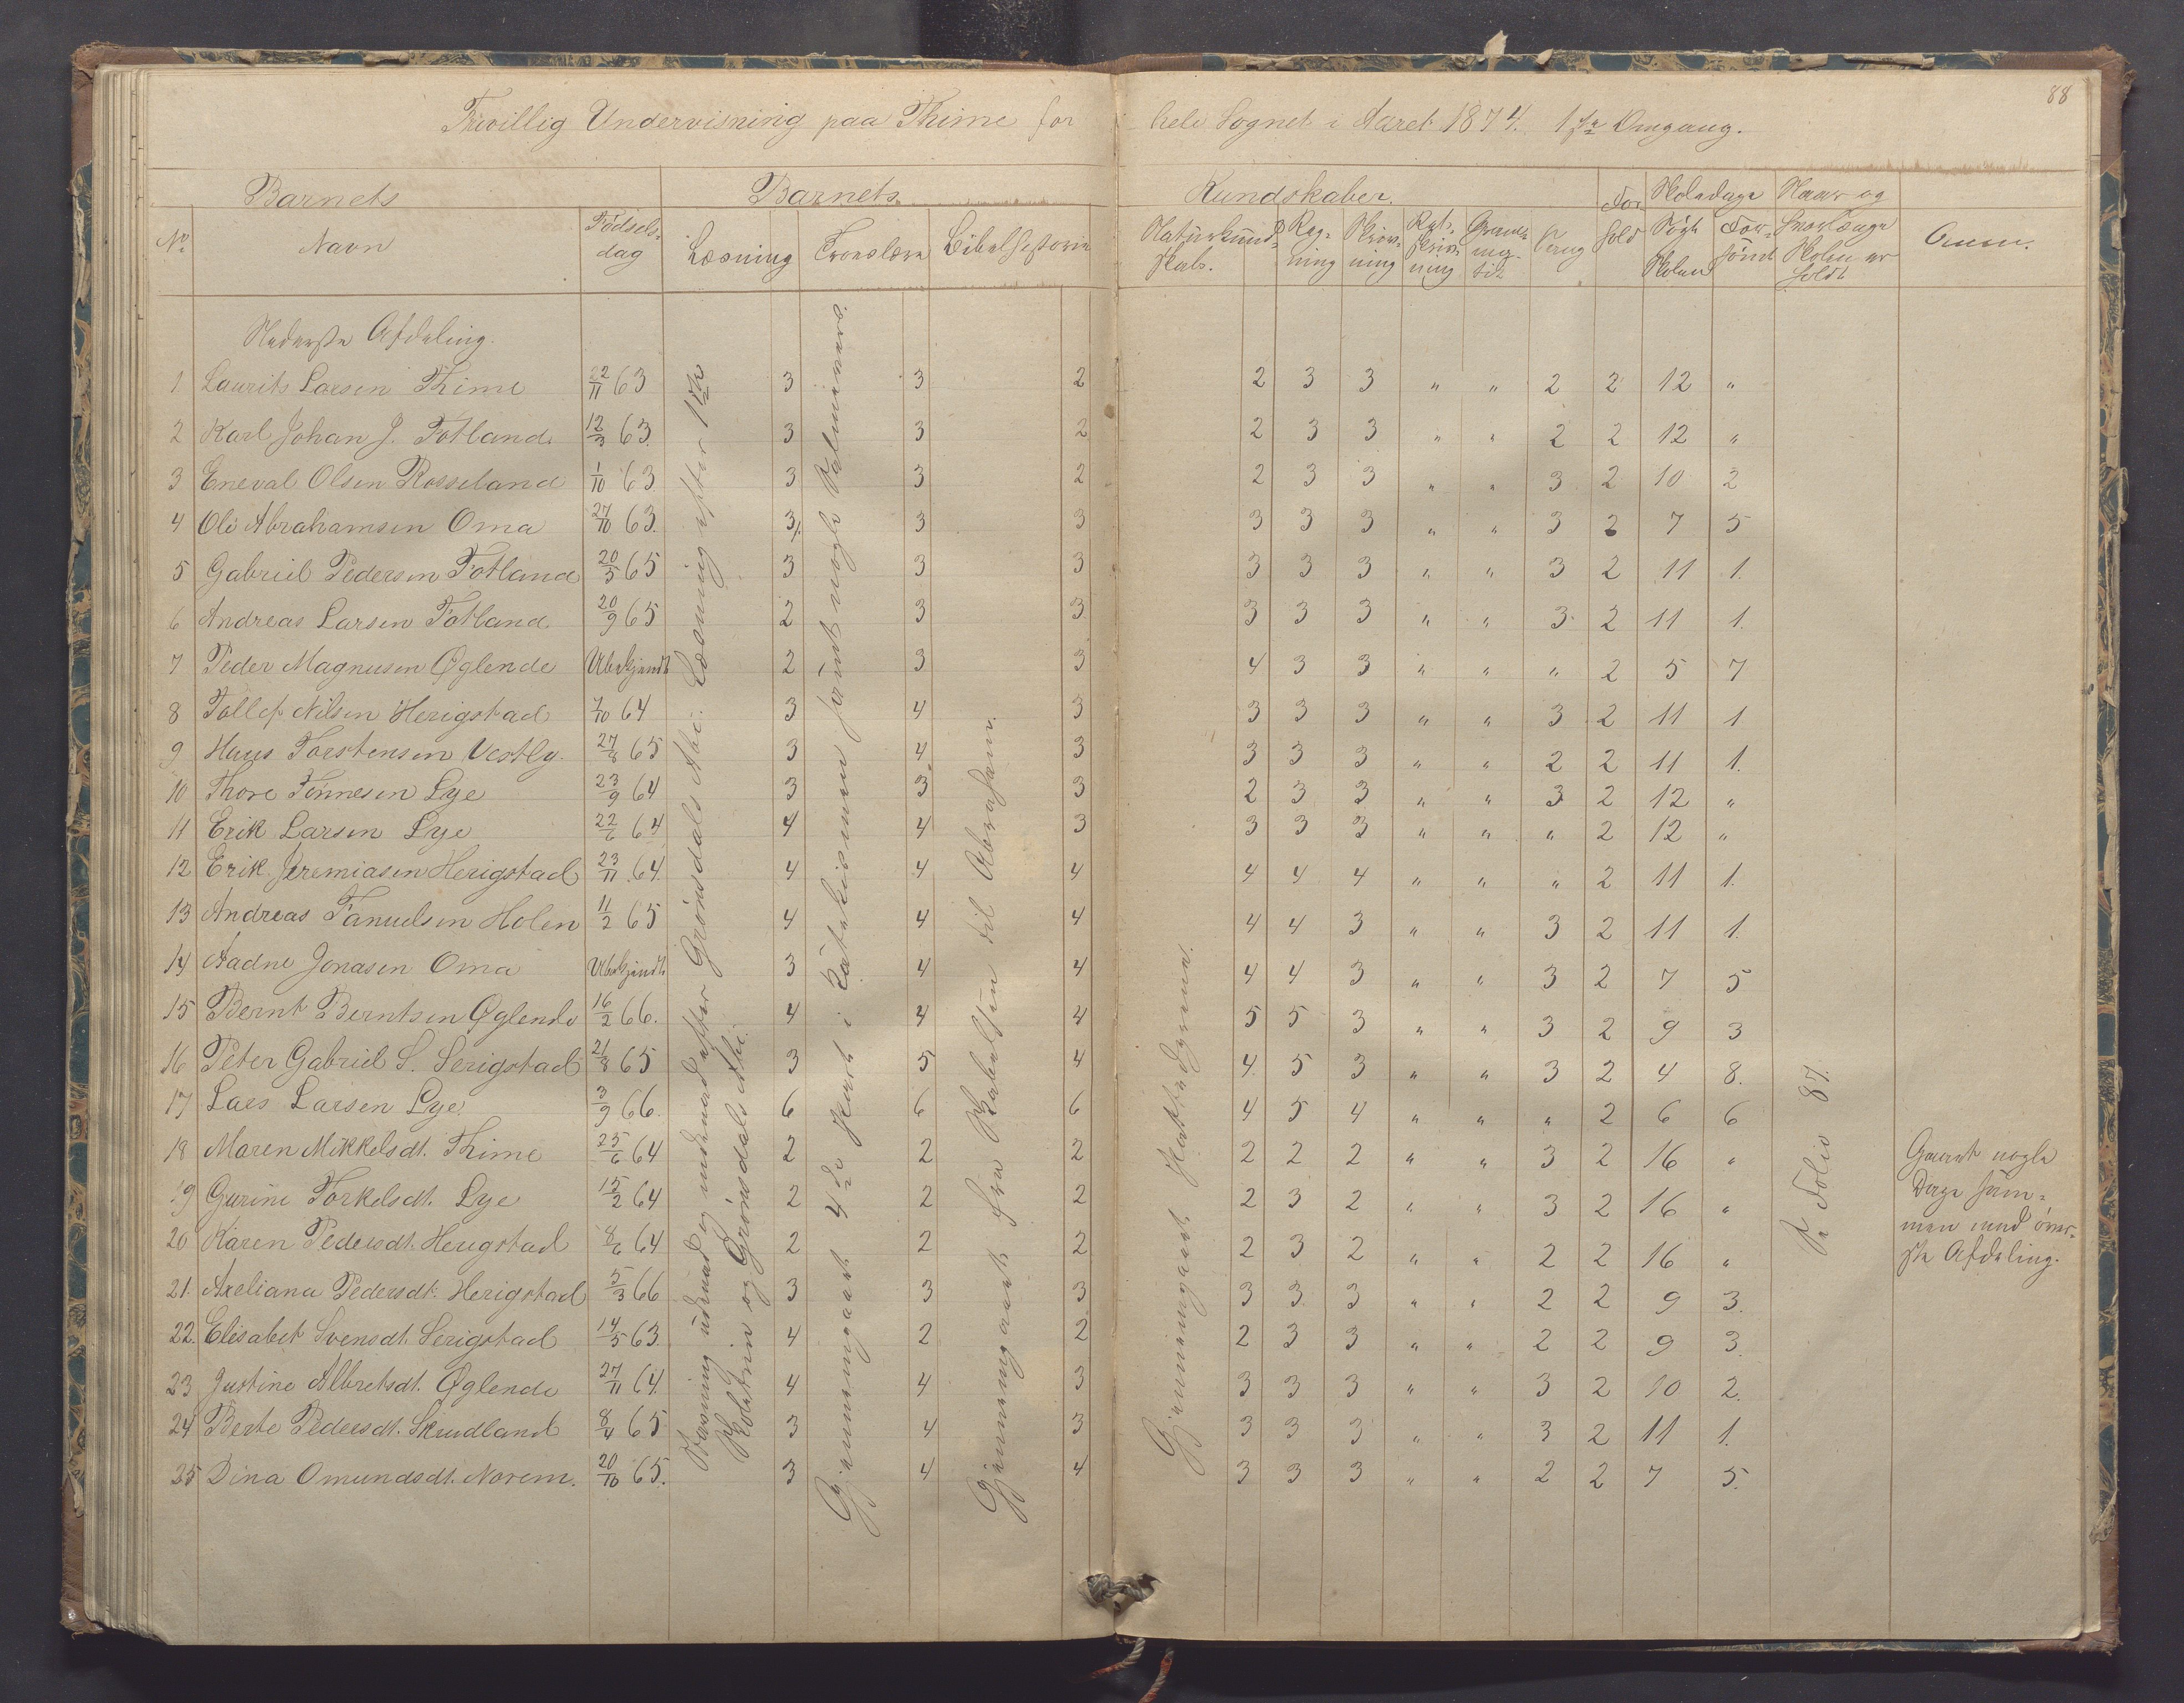 88
Frivillig Undervisning paa Thime for hele Sognet i Aaret 1874. 1ste Omgang.
Barnets Barnets Kundskaber. For Skoledage Naar og
No Navn Fødsels- dag Læsning Troeslære Bibelhistorie Naturkund- skab. Reg- ning Skriv- ning Ret- skriv- ning Gram- ma- tik Sang hold Søgt Skolen For- sömt hvorlænge Skolen er holdt Anm.
Nederste Afdeling.
1 Laurits Larsen Thime 22/11 63 3 3 2 2 3 3 " " 2 2 12 "
2 Karl Johan J. Fotland 12/3 63. 3 3 2 2 3 3 " " 2 2 12 "
3 Eneval Olsen Rosseland 1/10 63 3 3 2 2 3 3 " " 3 2 10 2
4 Ole Abrahamsen Oma 27/10 63. 3 3 3 3 3 3 " " 3 2 7 5
5 Gabriel Pedersen Fotland 20/5 65 3 3 3 3 3 3 " " 3 2 11 1.
6 Andreas Larsen Fotland 20/9 65 2 3 3 3 3 3 " " 3 2 11 1.
7 Peder Magnusen Øglende Ubekjendt 2 3 3 4 3 3 " " " 2 5 7
8 Tollef Nilsen Herigstad 7/10 64 3 4 3 3 3 3 " " 3 2 11 1
9 Hans Torstensen Vestly. 27/8 65 3 4 3 3 3 3 " " 2 2 11 1.
10 Thore Tønnesen Lye 23/9 64 3 3 3 2 3 3 " " 3 2 12 "
11 Erik Larsen Lye 22/6 64 4 4 3 3 3 3 " " " 2 12 "
12 Erik Jeremiasen Herigstad 23/11 64. 4 4 4 4 4 4 " " " 2 11 1.
13 Andreas Fanuelsen Holen 11/2 65 4 4 4 4 4 3 " " 3 2 11 1.
14 Aadne Jonasen Oma Ubekjendt 3 4 4 4 4 3 " " 3 2 7 5
15 Bernt Berntsen Øglende 16/2 66. 4 4 4 5 5 3 " " 3 2 9 3
16 Peter Gabriel S. Serigstad 21/8 65 3 5 4 4 5 3 " " 3 2 4 8.
17 Lars Larsen Lye 3/9 66. 6 6 6 4 5 4 " " " 2 6 6
18 Maren Mikkelsdt. Thime 25/6 64 2 2 2 2 2 2 " " 3 2 16 "
19 Gurine Torkelsdt. Lye 15/2 64 2 2 2 2 3 2 " " 3 2 16 "
20 Karen Pedersdt. Herigstad 8/6 64 2 2 2 2 3 2 " " 2 2 16 "
21. Axeliana Pedersdt. Herigstad 5/3 66 3 3 3 3 3 3 " " 2 2 9 3.
22. Elisabet Svensdt. Serigstad 14/5 63. 4 2 2 2 3 3 " " 2 2 9 3.
23 Justine Albretsdt. Øglende 27/11 64. 4 4 3 3 3 3 " " 3 2 10 2.
24 Berte Pedersdt. Skrudland 8/4 65 3 4 3 3 3 3 " " 3 2 11 1.
25 Dina Omundsdt. Norem. 20/10 65. 3 4 4 3 3 3 " " 2 2 7 5.
Stavning udenad og indenad efter Grønsdals Abc. Læsning efter 1ste
Skoletrin og Grønsdals Abc.
Gjennemgaaet 4de Part i Katekismen samt nogle Salmevers.
Gjennemgaaet fra Skabelsen til Abraham.
Gjennemgaaet Pattedyrene.
Se Folio 87.
Gaaet nogle
Dage sam-
men med över-
ste Afdeling.